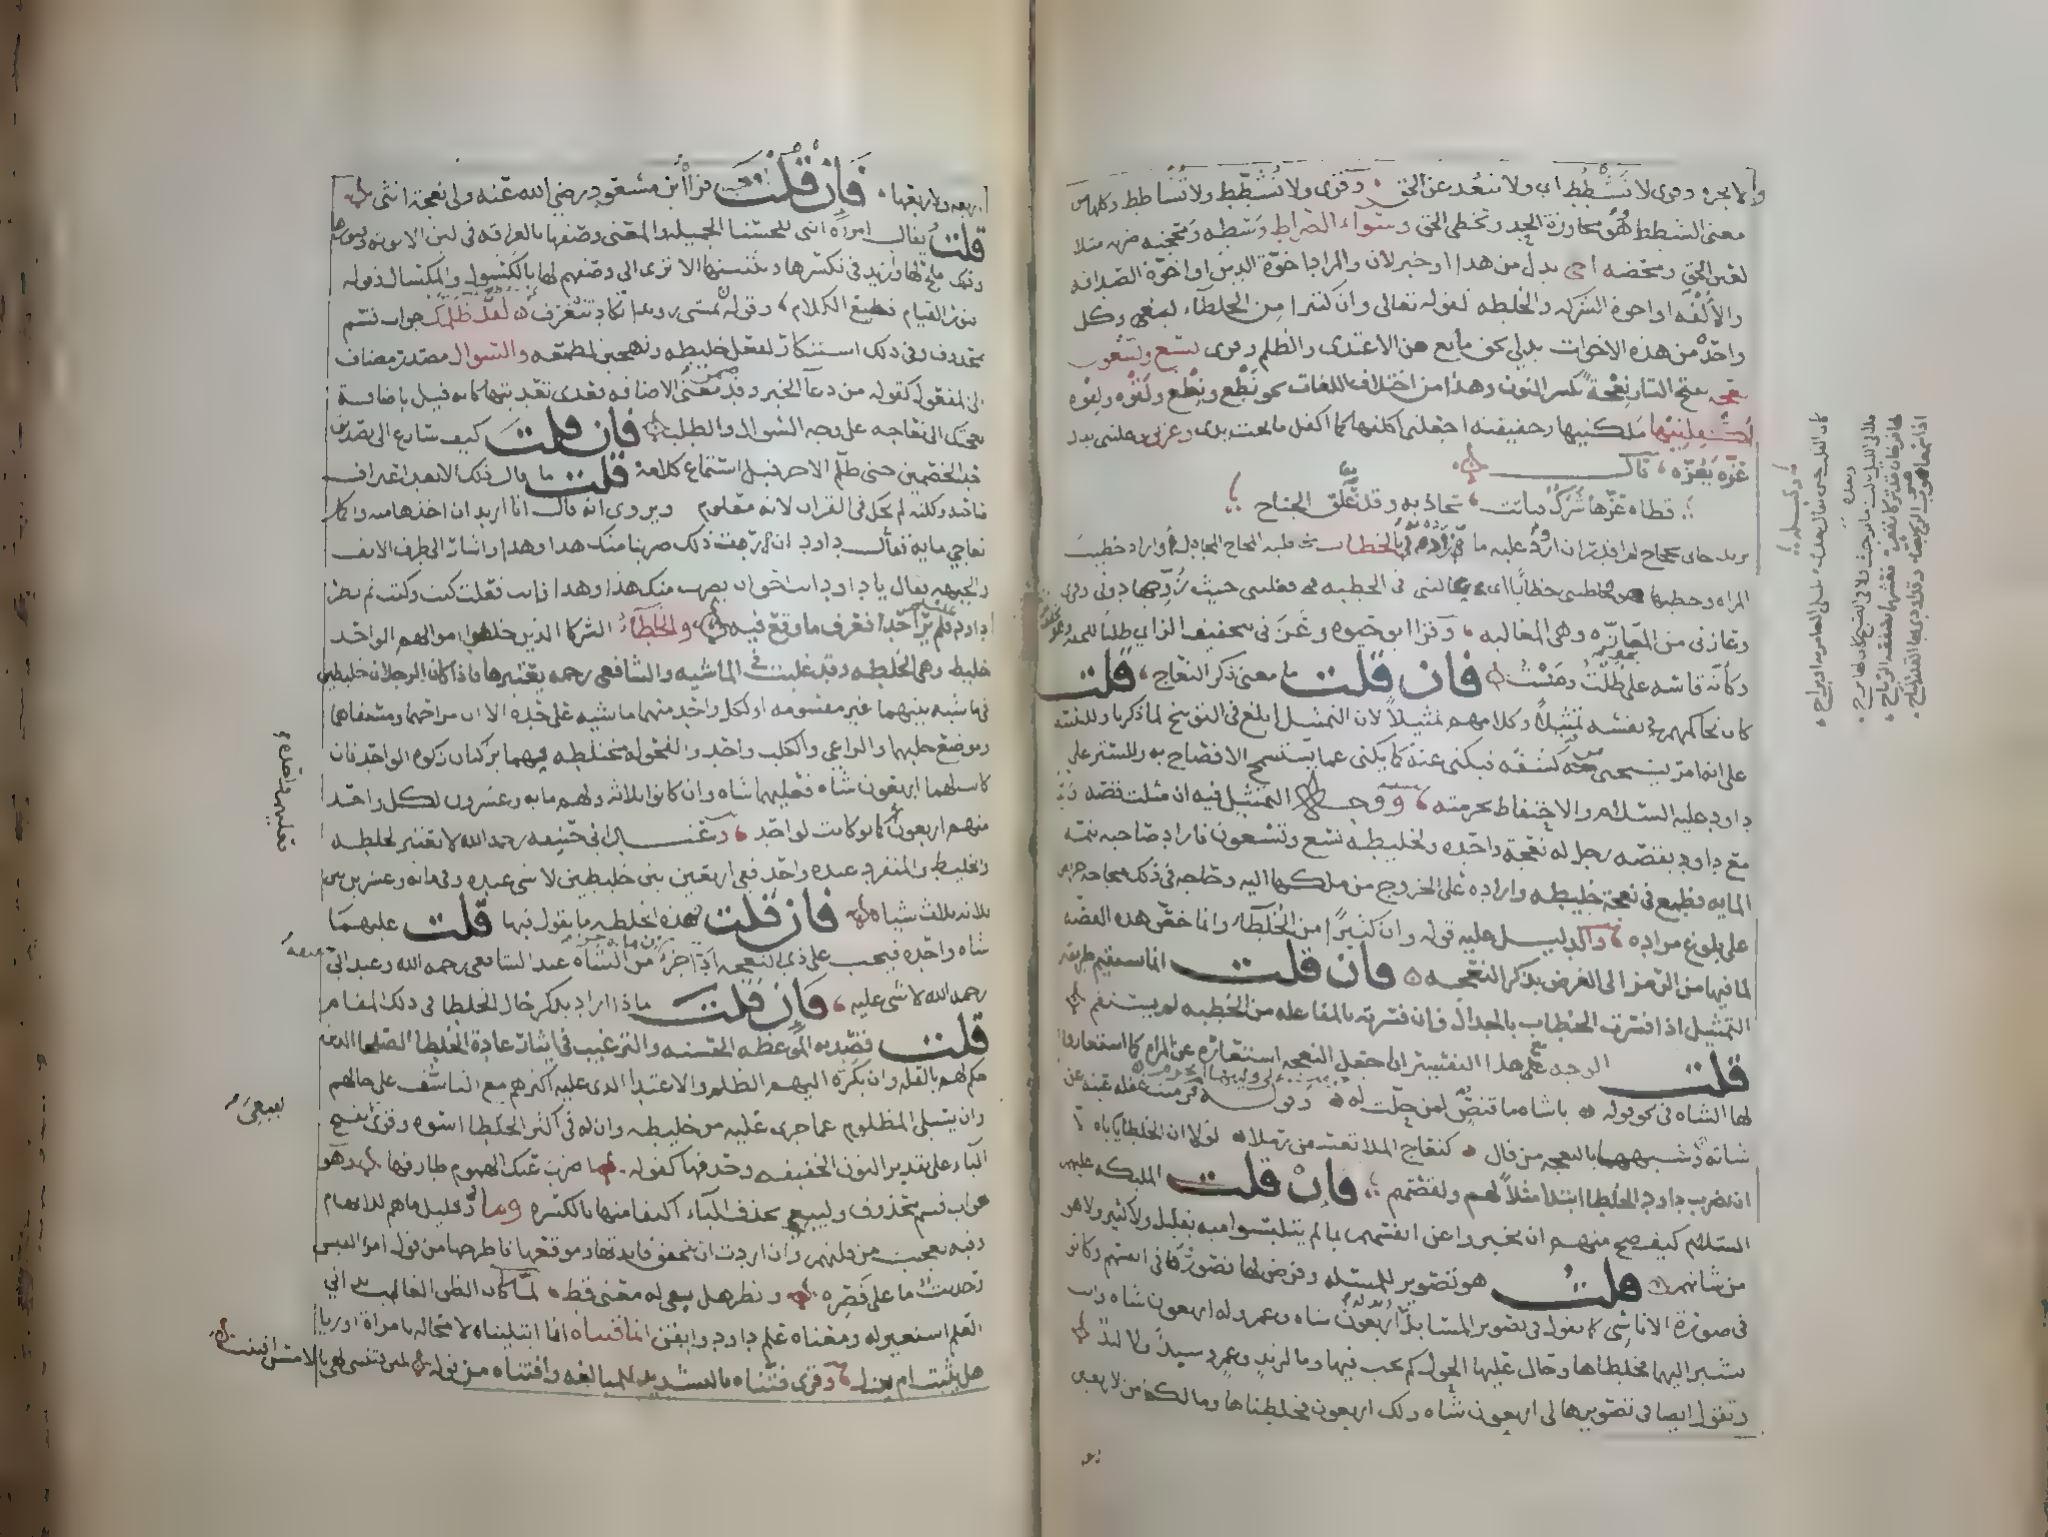 ولا تجره وقرئ لا تشطط اى ولا تبعد عن الحق وقرئ ولا تشطط ولا تشاطط وكلها من
معنى الشطط وهو مجاوزة الحد وتخطى الحق وسواء الصراط وسطه ومحجته ضربه مثلا
لعين الحق ومحضه اخى بدل من هذا او خبر لان والمراد اخوة الدين او اخوة الصداقة
والألفة او اخوة الشركة والخلطة لقوله تعالى وان كثيرا من الخلطاء ليبغى وكل
واحدة من هذه الاخوات يدلى بحق مانع من الاعتدى والظلم وقرئ تسع وتسعون
بفتح التا ونعجة بكسر النون وهذا من اختلاف اللغات نحو نطع ونطع ولقوة ولقوة
اكفلنيها ملكنيها وحقيقته اجعلنى اكفلها كما اكفل ما تحت يدى وعزنى وغلبنى يقال
عزه يعزه قال
قطاة عزها شرك فباتت تجاذبه وقد علق الجناح
يريد جانى بحجاج لم اقدر ان اورد عليه ما ارده به واراد بالخطاب مخاطبة المحاج المجادل او اراد خطبت
المراة وخطبها هو فخاطبنى خطابا اى غالبنى فى الخطبة فغلبنى حيث زوجها دونى وقرئ
وعازنى من المعازة وهى المغالبة وقرأ ابو حيوة وعزنى بتخفيف الزاى طلبا للخفة
وكأنه قاسه على ظلت ومست فان قلت ما معنى ذكر النعاج قلت
كان تحاكمهم فى نفسه تمثيلا وكلامهم تمثيلا لان التمثيل ابلغ فى التوبيخ لما ذكرنا وللتنبيه
على انه امر يستحيى من كشفه فيكنى عنه كما يكنى عما يستسمج الافصاح به وللستر على
داود عليه السلام والاحتفاظ بحرمته ووجه التمثيل فيه ان مثلت قصة
مع داود بقصة رجل له نعجة واحدة ولخليطه تسع وتسعون فاراد صاحبه تتمة
الماية فطمع فى نعجة خليطه واراده على الخروج من ملكها اليه وحاجه فى ذلك محاجة حريص
على بلوغ مراده والدليل عليه قوله وان كثيرا من الخلطاء وانما خص هذه القصة
لما فيها من الرمز الى الغرض بذكر النعجة فان قلت انما تستقيم طريقة
التمثيل اذا فسرت الخطاب بالجدال فان فسرته بالمفاعلة من الخطبة لم يستقم
قلت الوجه مع هذا التفسير ان اجعل النعجة استعارة عن المراة كما استعاروا
لها الشاة فى نحو قوله يا شاة ما قنص لمن حلت له وقوله فرميت غفلة عينه عن
شاته وشبهها بالنعجة من قال كنعاج الملا تعسفن رملا لولا ان الخلطاء تاباه
ان يضرب داود الخلطا ابتدا مثلا لهم ولقصتهم فان قلت الملئكة عليهم
السلام كيف صح منهم ان يخبروا عن انفسهم بما لم يتلبسوا منه بقليل ولا كثير ولا هو
من شانهم قلت هو تصوير للمسئلة وفرض لها فصوروها فى انفسهم وكانوا
فى صورة الاناسى كما تقول فى تصوير المسايل زيد له اربعون شاة وعمرو له اربعون شاة وانت
تشير اليهما فخلطاها وحال عليها الحول كم يجب فيها وما لزيد وعمرو سبد ولا لبد
وتقول ايضا فى تصويرها لى اربعون شاة ولك اربعون فخلطناها وما لكما من
وقبله
كان القلب حين يقال يغدا بليلى العامرية او يراح
وبعده
فلا فى الليل نالت ما ترجت ولا فى الصبح كان لها براح
لها فرخان قد تركا بقفر وعشهما تصفقه الرياح
اذا سمعا هبوب الريح
اربعة ولا ربعها فان قلت ما وجه قراة ابن مسعود رضى الله عنه ولى نعجة انثى
قلت يقال امراة انثى للحسنا الجميلة والمعنى وصفها بالعراقة فى لين الانوثة وفتورها
وذلك املح لها وازيد فى تكسرها وتثنيها الا ترى الى وصفهم لها بالكسول والمكسال وقوله
فتور القيام قطيع الكلام وقوله تمشى رويدا تكاد تنغرف لقد ظلمك جواب قسم
محذوف وفى ذلك استنكار لفعل خليطه وتهجين لطمعه والسوال مصدر مضاف
الى المفعول كقوله من دعاء الخير وقد ضمن معنى الاضافة فعدى تعديتها كانه قيل باضافة
نعجتك الى نعاجه على وجه السوال والطلب فان قلت كيف سارع الى تصديق
احد الخصمين حتى ظلم الاخر قبل استماع كلامه قلت ما قال ذلك الا بعد اعتراف
صاحبه ولكنه لم يحك فى القران لانه معلوم ويروى انه قال انا اريد ان اخذها منه واكمل
نعاجى ماية فقال داود ان رمت ذلك ضربنا منك هذا وهذا واشار الى طرف الانف
والجبهة فقال يا داود انت احق ان يضرب منك هذا وهذا وانت فعلت كيت وكيت ثم نظر
داود فلم ير احدا فعرف ما وقع فيه والخلطاء الشركا الذين خلطوا اموالهم الواحد
خليط وهى الخلطة وقد غلبت فى الماشية والشافعى رحمه يعتبرها فاذا كان الرجلان خليطين
فى ماشية بينهما غير مقسومة او لكل واحد منهما ماشية على حدة الا ان مراحهما ومسقاهما
وموضع حلبهما والراعى والكلب واحد والفحولة مختلطة فهما يزكيان زكوة الواحد فان
كانت لهما اربعون شاة فعليهما شاة وان كانوا ثلاثة ولهم ماية وعشرون لكل واحد
منهم اربعون كما لو كانت لواحد وعند ابى حنيفة رحمه الله لا تعتبر الخلطة
والخليط والمنفرد عنده واحد ففى اربعين بين خليطين لا شى عنده وفى مائة وعشرين بين
ثلاثة ثلاث شياه فان قلت فهذه الخلطة ما تقول فيها قلت عليهما
شاة واحدة فيجب على ذى النعجة اداء جزء من ماية جزء من الشاة عند الشافعى رحمه الله وعند ابى حنيفة
رحمه الله لا شى عليه فان قلت ماذا اراد بذكر حال الخلطا فى ذلك المقام
قلت قصد به الموعظة الحسنة والترغيب فى ايثار عادة الخلطا الصلحا الذين
حكم لهم بالقلة وان يكره اليهم الظلم والاعتدا الذى عليه اكثرهم مع التاسف على حالهم
وان يتسلى المظلوم عما جرى عليه من خليطه وان له فى اكثر الخلطا اسوة وقرئ بفتح
الياء على تقدير النون الخفيفة وحذفها كقوله اضرب عنك الهموم طارقها وهو
جواب قسم محذوف وليبغ بحذف الياء اكتفا منها بالكسرة وما فى وقليل ما هم للابهام
وفيه تعجب من قلتهم وان اردت ان تتحقق فايدتها وموقعها فاطرحها من قول امرئ القيس
وحديث ما على قصره وانظر هل بقى له معنى قط لما كان الظن الغالب يدانى
العلم استعير له ومعناه وعلم داود وايقن انما فتناه انا ابتليناه لا محالة بامراة اوريا
هل يثبت ام يزل وقرئ فتناه بالتشديد للمبالغة وافتناه من قوله لئن فتنتنى لهى بالامس افتنت
فعليهم واحدة
ليبغى